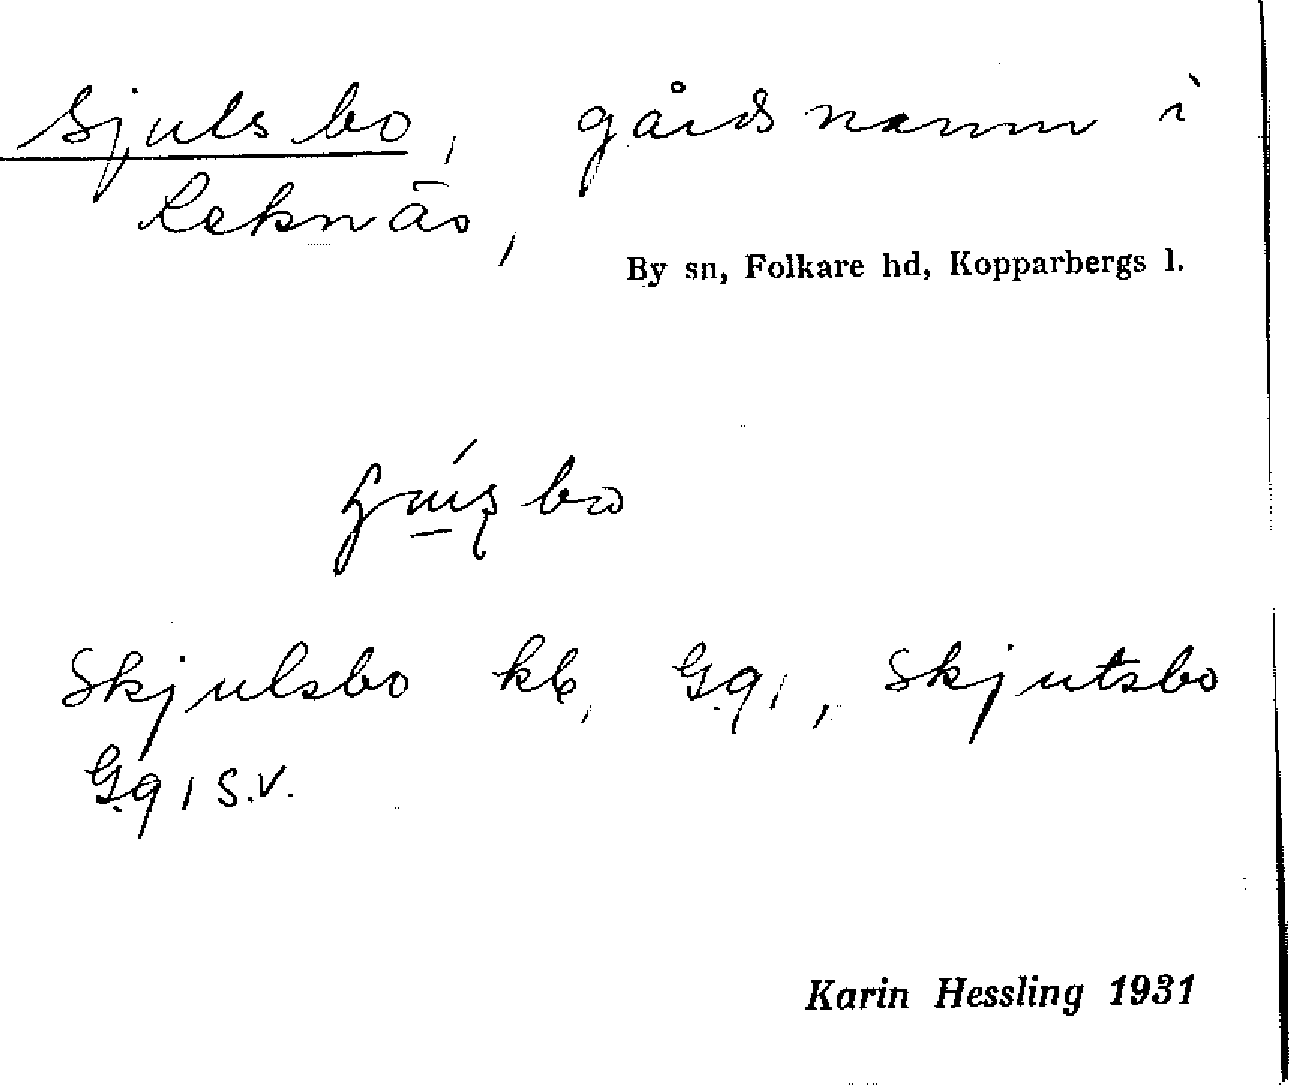 Sjulsbo, gårdsnamn i
Leknäs,
By sn, Folkare hd, Kopparbergs l.
bo
Skjulsbo kb, G.q1, Skjutsbo
G.q1 s.v.
Karin Hessling 1931